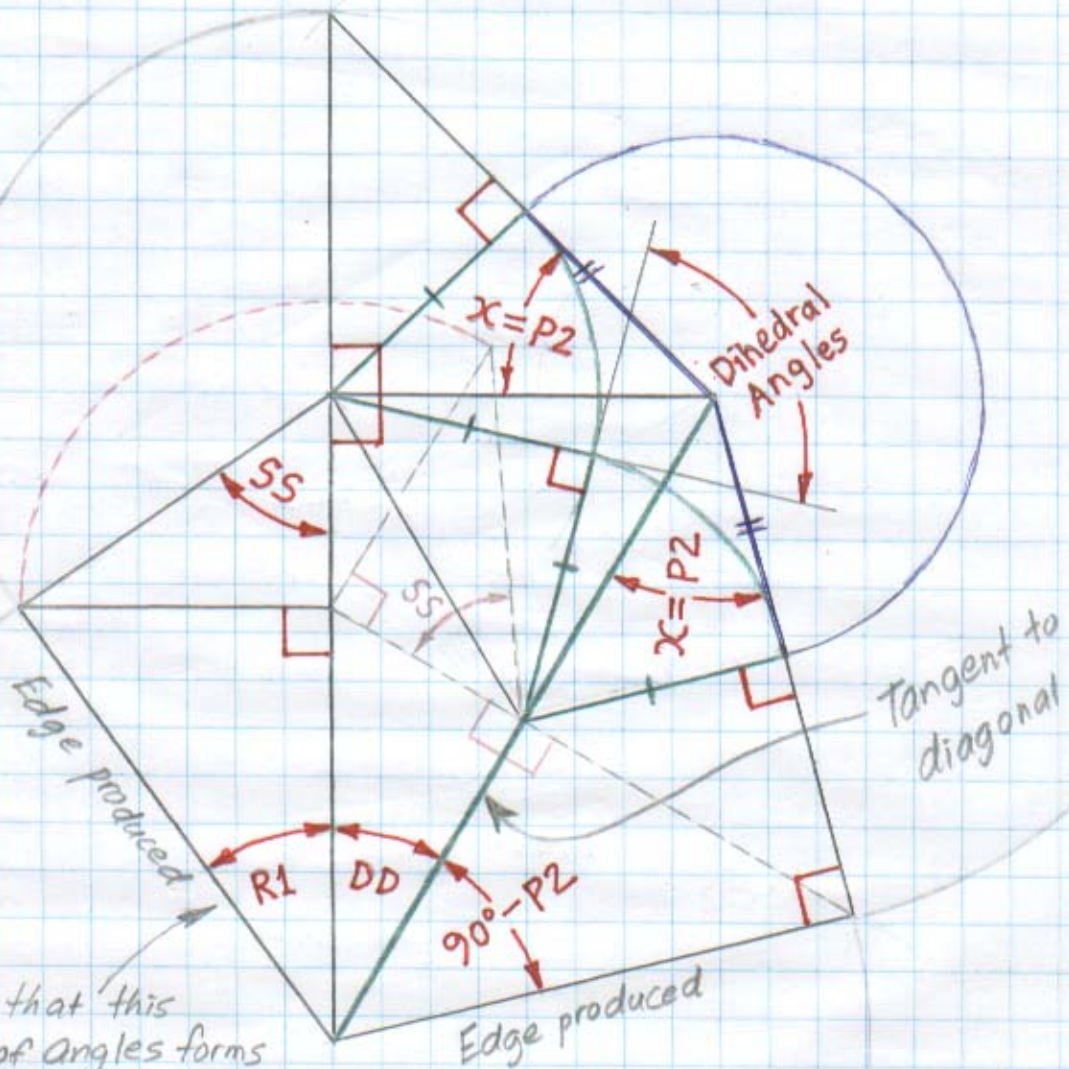 x=P2
Dihedral
Angles
SS
SS
x=P2
Tangent to
diagonal
Edge produced
R1
DD
90°-P2
Edge produced
that this
of angles forms